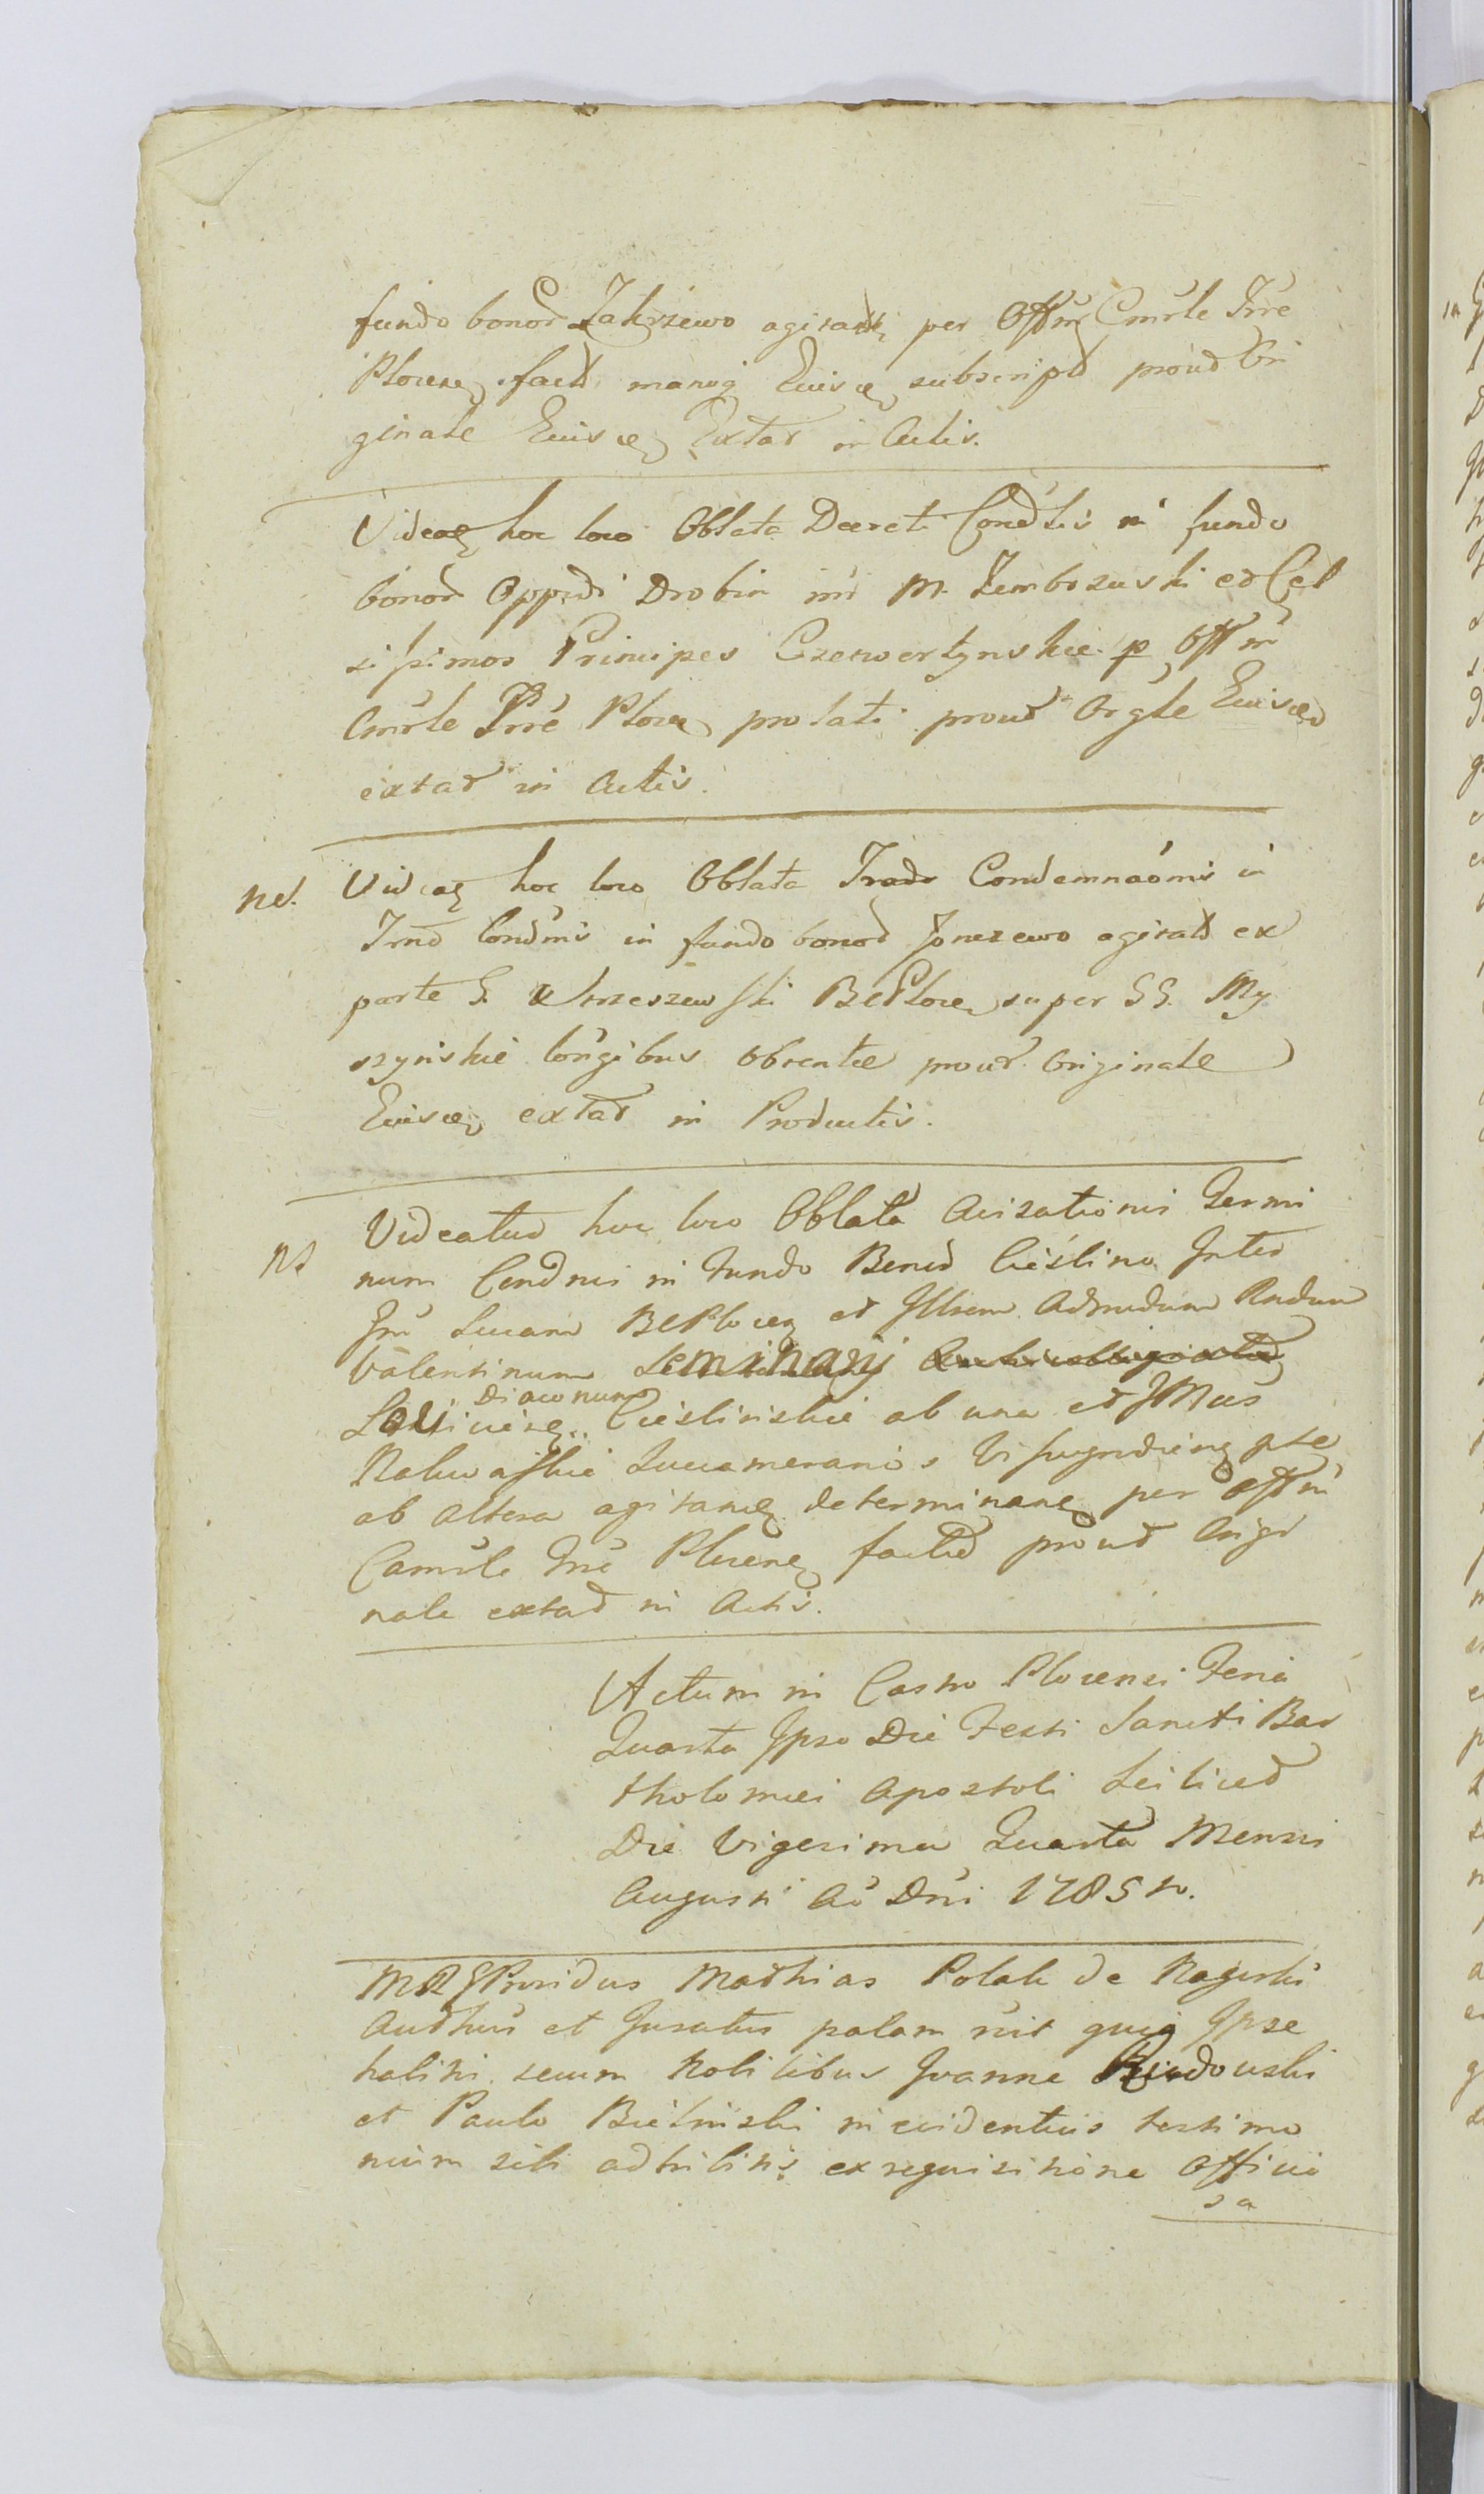 fundo bonor Zakrzewo agitati per Offm Cmrle Trre
Plocen fact manuq Eiusce subscript prout Ori
ginale Eiusce Extat in Actis.
Videat hoc loco Oblata Decreti Condlis in fundo
bonor Oppidi Drobin int M. Zembrzuski et Cel
sissimos Principes Czetwertynskie p Offm
Cmrle Trre Plocen prolati prout Orgle Eiusce
extat in Actis.
nd. Videat hoc loco Oblata Trado Condemnaonis in
Trno Condnis in fundo bonor Jonczewo agitati ex
parte G. Wrzeszewski BCPlocen super GG. My
szynskie Congibus obtentae prout Originale
Eiusce extat in Productis.
nd Videatur hoc loco Oblata Avisationis Termi
num Condnis in Fundo Bonor Cieslino Inter
Gm Lucam BCPlocen et Illrem Admodum Rndum
Valentinum Seminarij
Diaconum
Lovicien Cieslinskie ab una et JMCos
Nakwaskie Succamerarios Vissogrodien pte
ab altera agitan determinan per Offm
Camrle Trre Plocen factae prout Origi
nale extat in Actis.
Actum in Castro Plocensi Feria
Quarta Ipso Die Festi Sancti Bar
tholomei Apostoli Scilicet
Die Vigesima Quarta Mensis
Augusti Ao Dni 1785to.
MRG Providus Mathias Polak de Nagorki
Authus et Juratus palam rnit quia Ipse
habitis secum Nobilibus Joanne Rzendowski
et Paulo Bielinski in evidentius testimo
nium sibi adhibitis ex requisitione Officio
sa